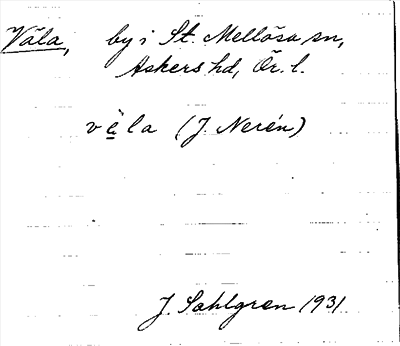 Väla, by i St. Mellösa sn,
Askers hd, Ör. l.
vè̤la (J. Nerén)
J. Sahlgren 1931